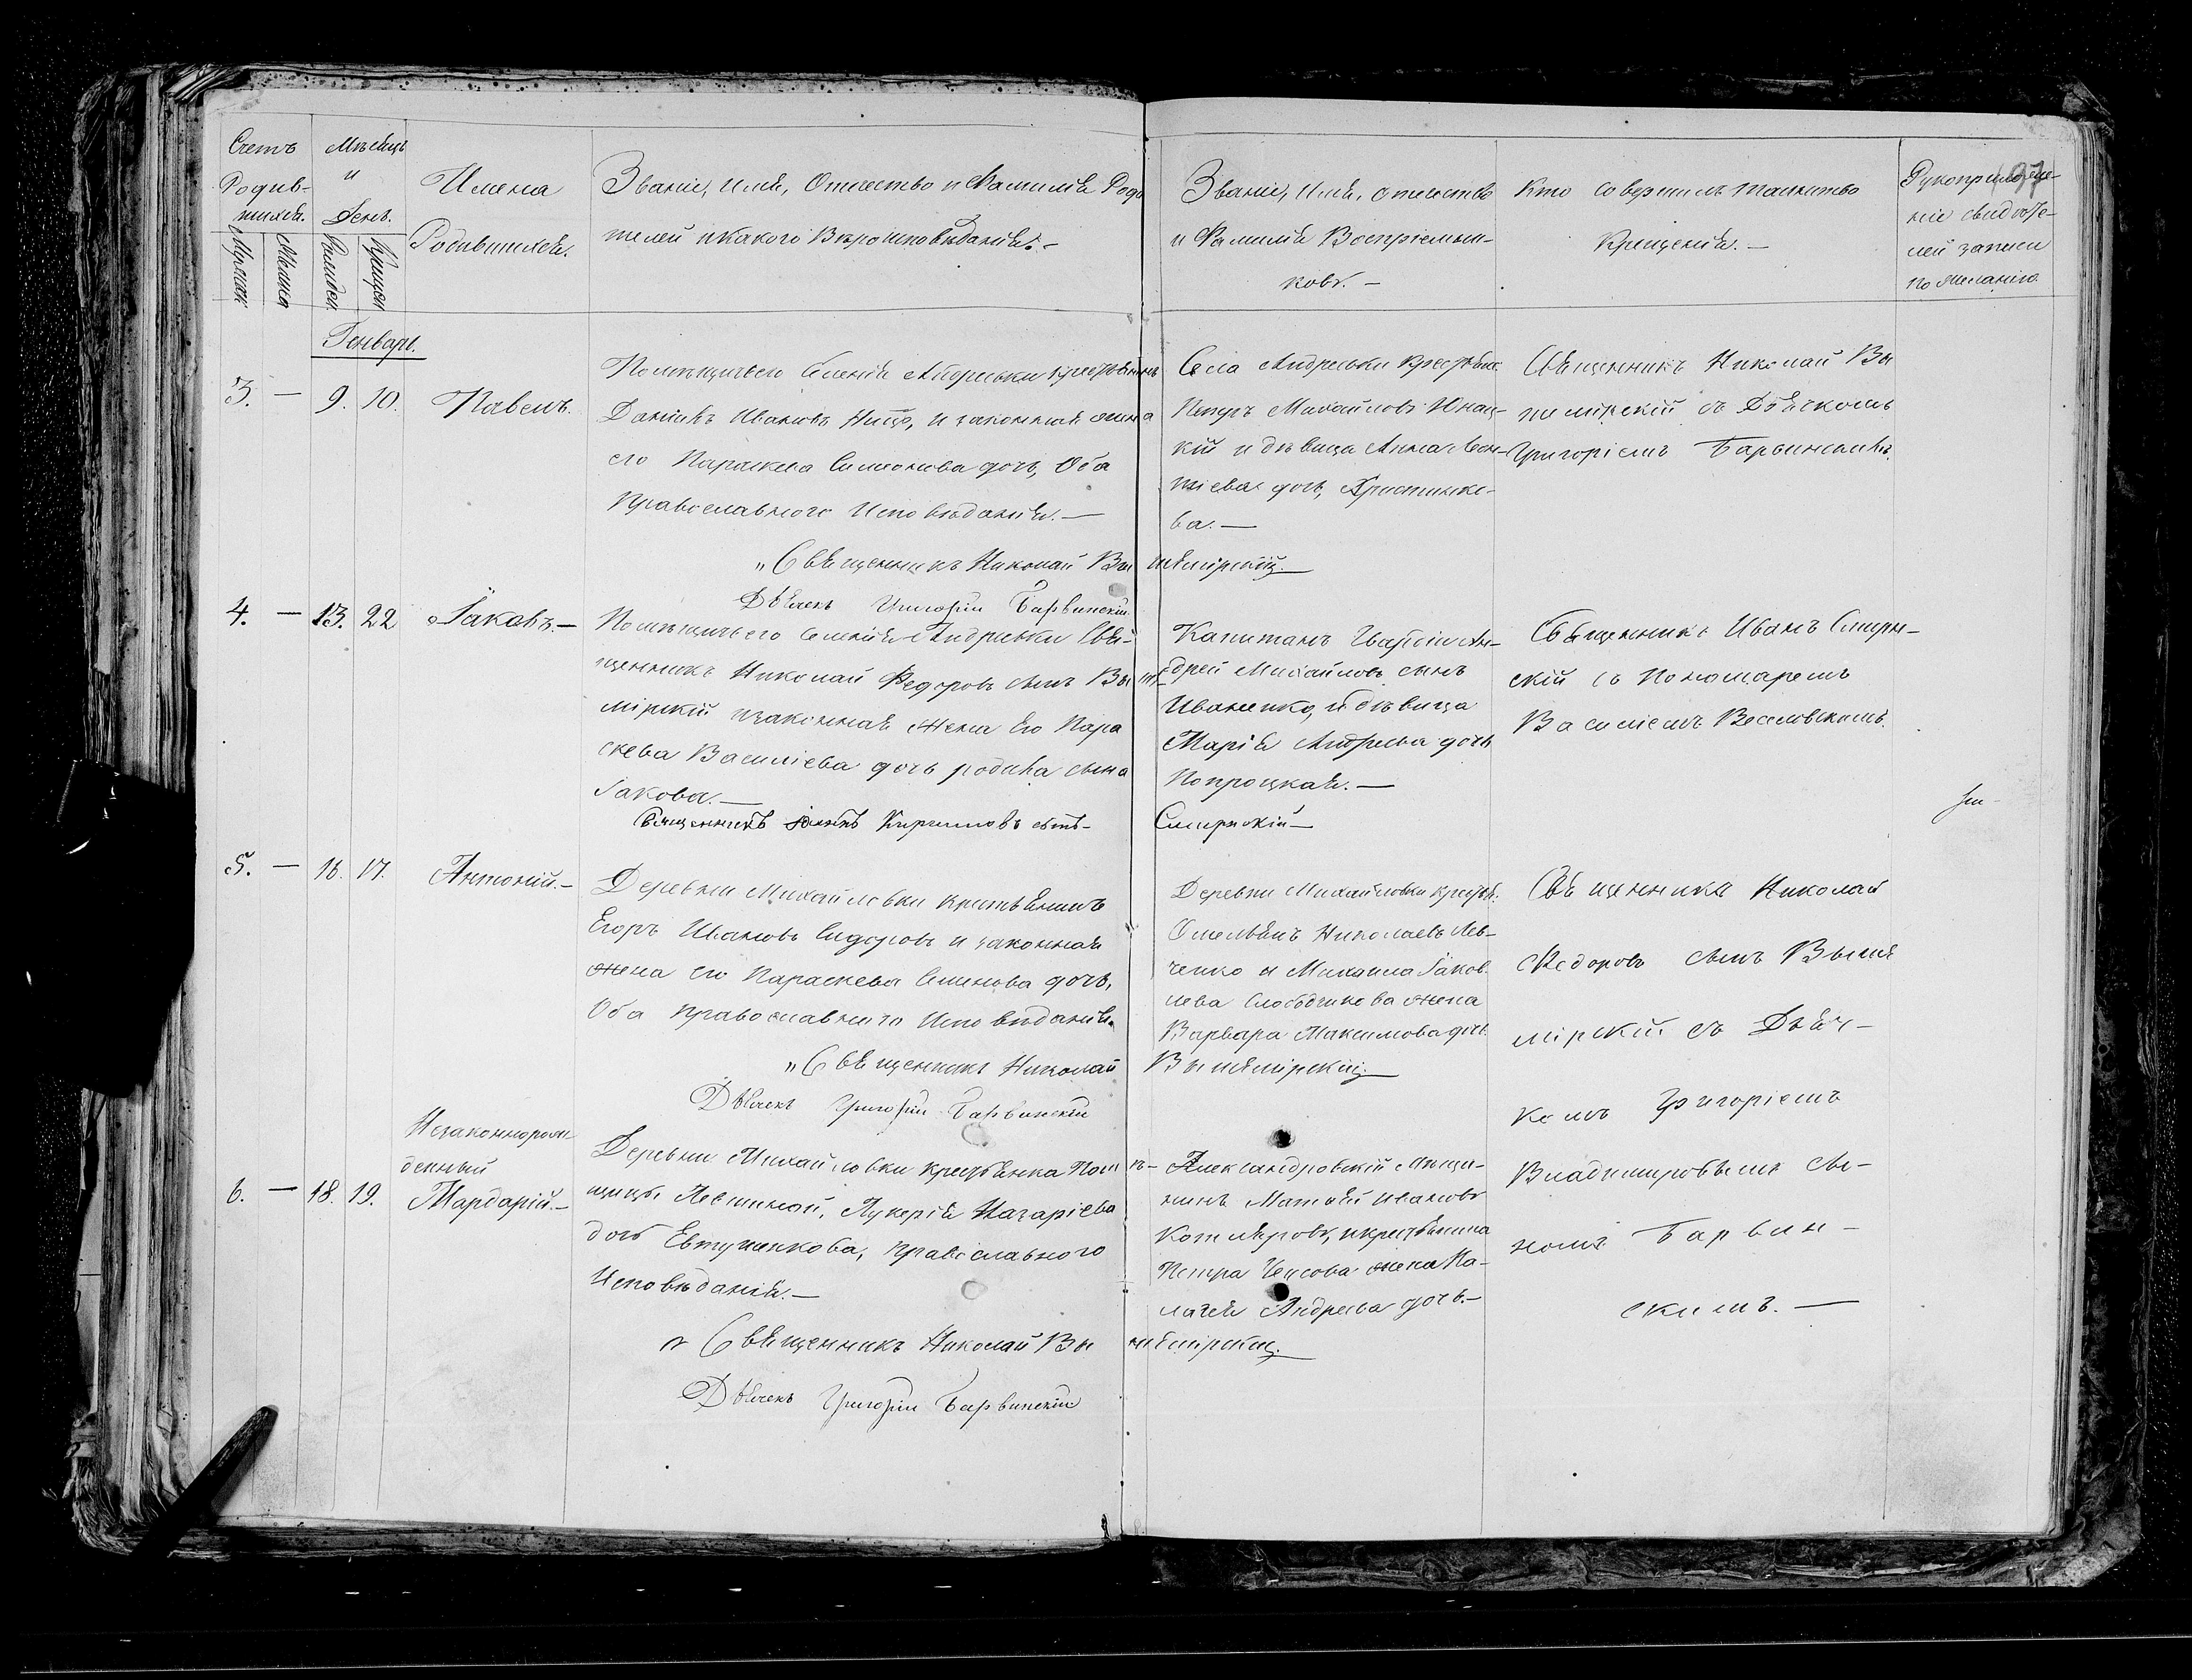 Счетъ
Родив-
шихся.
Мѣсяцъ
и
день.
Имена
Родившихся.
Званіе, имя, Отчество и Фамилія Роди
телей и какого Вѣроисповѣданія. –
Званіе, имя, отчество
и Фамилія Воспріемни-
ковъ. –
Кто совершилъ таинство
Крещенія. –
Рукоприложе-
ніе свидѣте-
лей записи
по желанію.
Мужск
Женска
Рожден.
Крещен
Генварь.
3. – 9. 10. Павелъ.
Помѣщичьего селенія Андреевки крестьянинъ
Даніилъ Ивановъ и законная жена
его Параскева Симеонова дочь, Оба
Православного Исповѣданія. –
„Священникъ Николай Вы шемірскій. –
Дьячекъ Григорій Барвинскій.
Села Андреевки крестьян.
Петръ Михайловъ
кій и дѣвица Анна Леон-
тіева дочь,
ва. –
Священникъ Николай Вы
шемірскій съ Дьячкомъ
Григоріемъ Барвинскимъ.
4. – 13. 22 Іаковъ. –
Помѣщичьего селенія Андреевки Свя-
щенникъ Николай Федоровъ сынъ Вы ше-
мірскій и законная жена его Пара
скева Василіева дочь родила сына
Іакова. –
Священникъ Іоаннъ Кирилловъ сынъ – Смирнскій –
Капитанъ Гвардіи Ан-
дрей Михайловъ сынъ
Иваненко, и дѣвица
Марія Андреева дочь
Попроцкая. –
Священникъ Иванъ Смирн-
скій съ Пономаремъ
Василіемъ Веселовскимъ.
5. – 16. 17. Антоній. –
Деревни Михайловки крестьянинъ
Егоръ Ивановъ Сидоровъ и законная
жена его Параскева Семенова дочь,
Оба православного Исповѣданія.
„Священникъ Николай Вышемірскій. –
Дьячекъ Григорій Барвинскій
Деревни Михайловки крестья.
Омельянъ Николаевъ Лев-
ченко и Михаила Іаков.
лева Слободчикова жена
Варвара Максимова дочь.
Священника Николай
Федоровъ сынъ Выше
мірскій съ Дьяч-
комъ Григоріемъ
Владимировымъ сы-
номъ Барвин-
скимъ. –
Незаконнорож-
денный
6. – 18. 19. Мардарій. –
Деревни Михайловки крестьянка Помѣ-
щицы Левшиной, Лукерія Назаріева
дочь Евтушенкова, православного
Исповѣданія. –
„Священникъ Николай Вы шемірскій. –
Дьячекъ Григорій Барвинскій
Александровскій мѣща-
нинъ Матвѣй Ивановъ
Котляровъ, и крестьянина
Петра жена Па-
лагея Андреева дочь. –